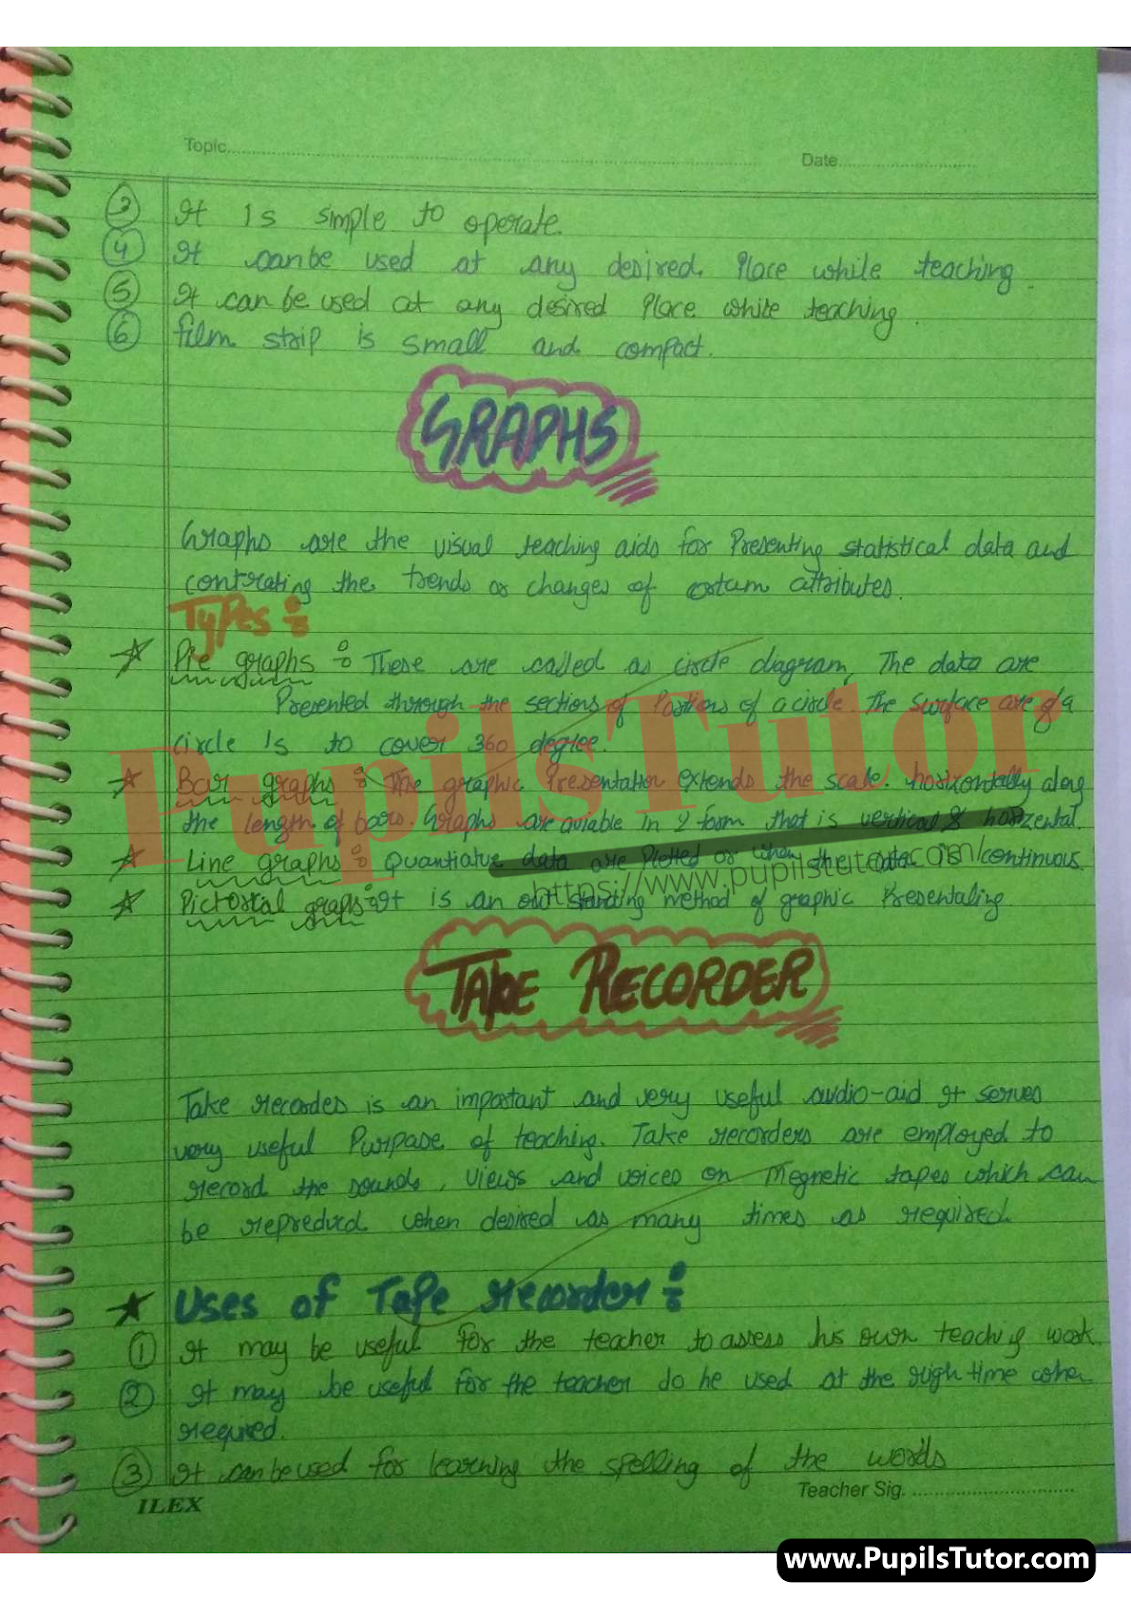 Topic
Date
3 It is simple to operate.
4 It can be used at any desired. Place while teaching.
5 It can be used at any desired Place white teaching.
6 film strip is small and compact.
GRAPHS
Graphs are the visual teaching aids for Presenting statistical data and
the trends or changes of attributes.
Types :
Pie graphs : These are called as circle diagram, The data are
Presented through the sections of Portions of a circle. The surface are of a
circle Is to cover 360 degree.
Bar graphs : The graphic Presentation extends the scale. horizontally along
the length of bars. Graphs are aviable in 2 form that is vertical & horzental.
Line graphs : Quantiative data are Plotted or when the data is continuous.
Pictorial graps : It is an out standing method of graphic Presentaling.
PupilsTutor
https://www.pupilstutor.com/
TAKE RECORDER
Take recorder is an important and very useful audio-aid It serves
very useful Purpase of teaching. Take recorders are employed to
record the sounds, views and voices on Megnetic tapes which can
be repreduced when desired as many times as required.
Uses of Tape recorder :
1 It may be useful for the teacher to assess his own teaching work.
2 It may be useful for the teacher do he used at the righ time when
required.
3 It can be used for learning the spelling of the words
Teacher Sig.
ILEX
www.PupilsTutor.com